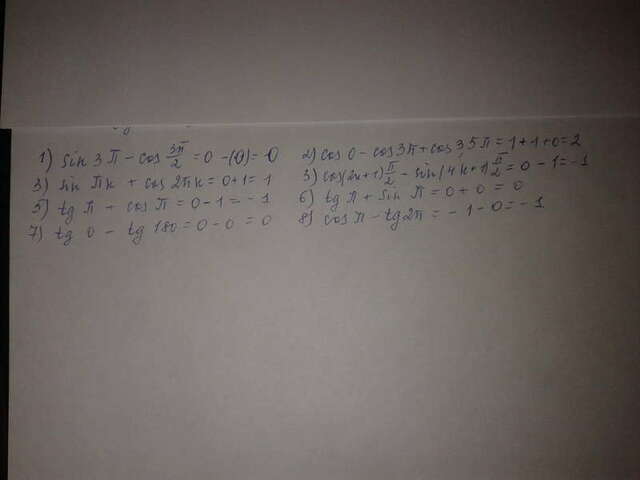 1) sin 3π - cos 3π/2 = 0 - (0) = 0 2) cos 0 - cos 3π + cos 3,5 π = 1 + 1 + 0 = 2
3) sin πk + cos 2πk = 0 + 1 = 1 3) cos(2k+1) π/2 - sin(4k+1) π/2 = 0 - 1 = -1
5) tg π + cos π = 0 - 1 = -1 6) tg π + sin π = 0 + 0 = 0
7) tg 0 - tg 180 = 0 - 0 = 0 8) cos π - tg 2π = -1 - 0 = -1